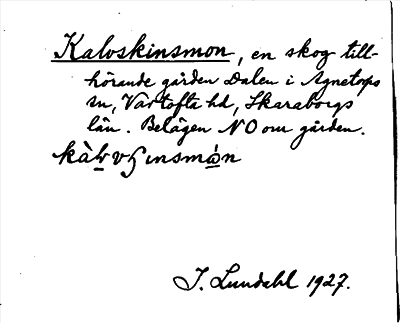 Kalvskinsmon, en skog till-
hörande gården Dalen i Agnetorps
sn, Vartofta hd, Skaraborgs
län. Belägen NO om gården.
J. Lundahl 1927.